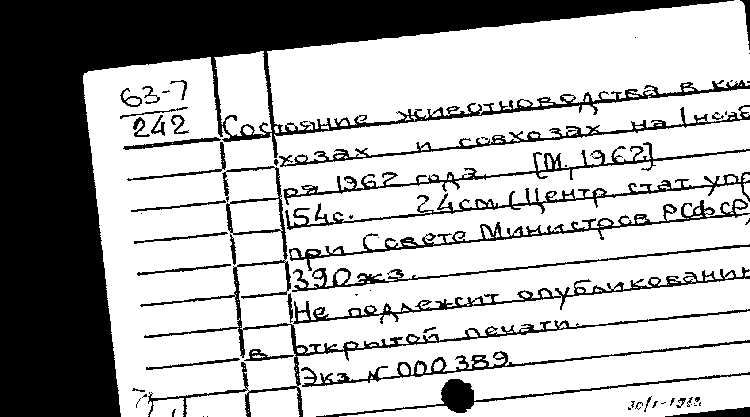 63-7
242
Состояние животноводства в кол-
хозах и совхозах на 1 нояб-
ря 1962 года. [М., 1962]
154с. 24см (Центр. стат. упр.
при Совете Министров РСФСР)
390жз.
Не подлежит опубликованию
в открытой печати.
Экз. № 000389.